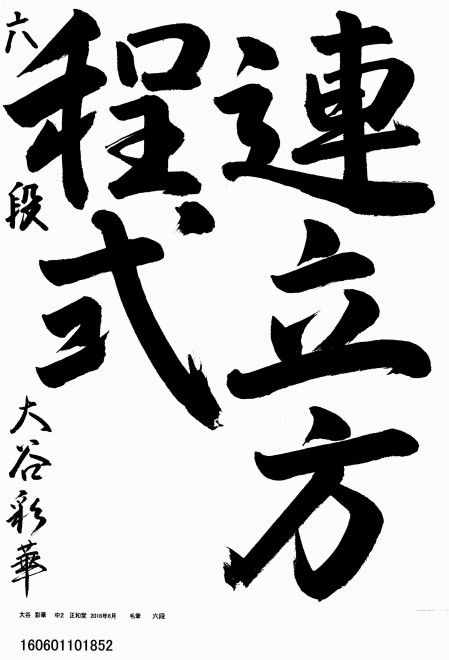 連立方
程式
六段
大谷彩華
大谷 彩華 中2 正和堂 2016年6月 毛筆 六段
160601101852